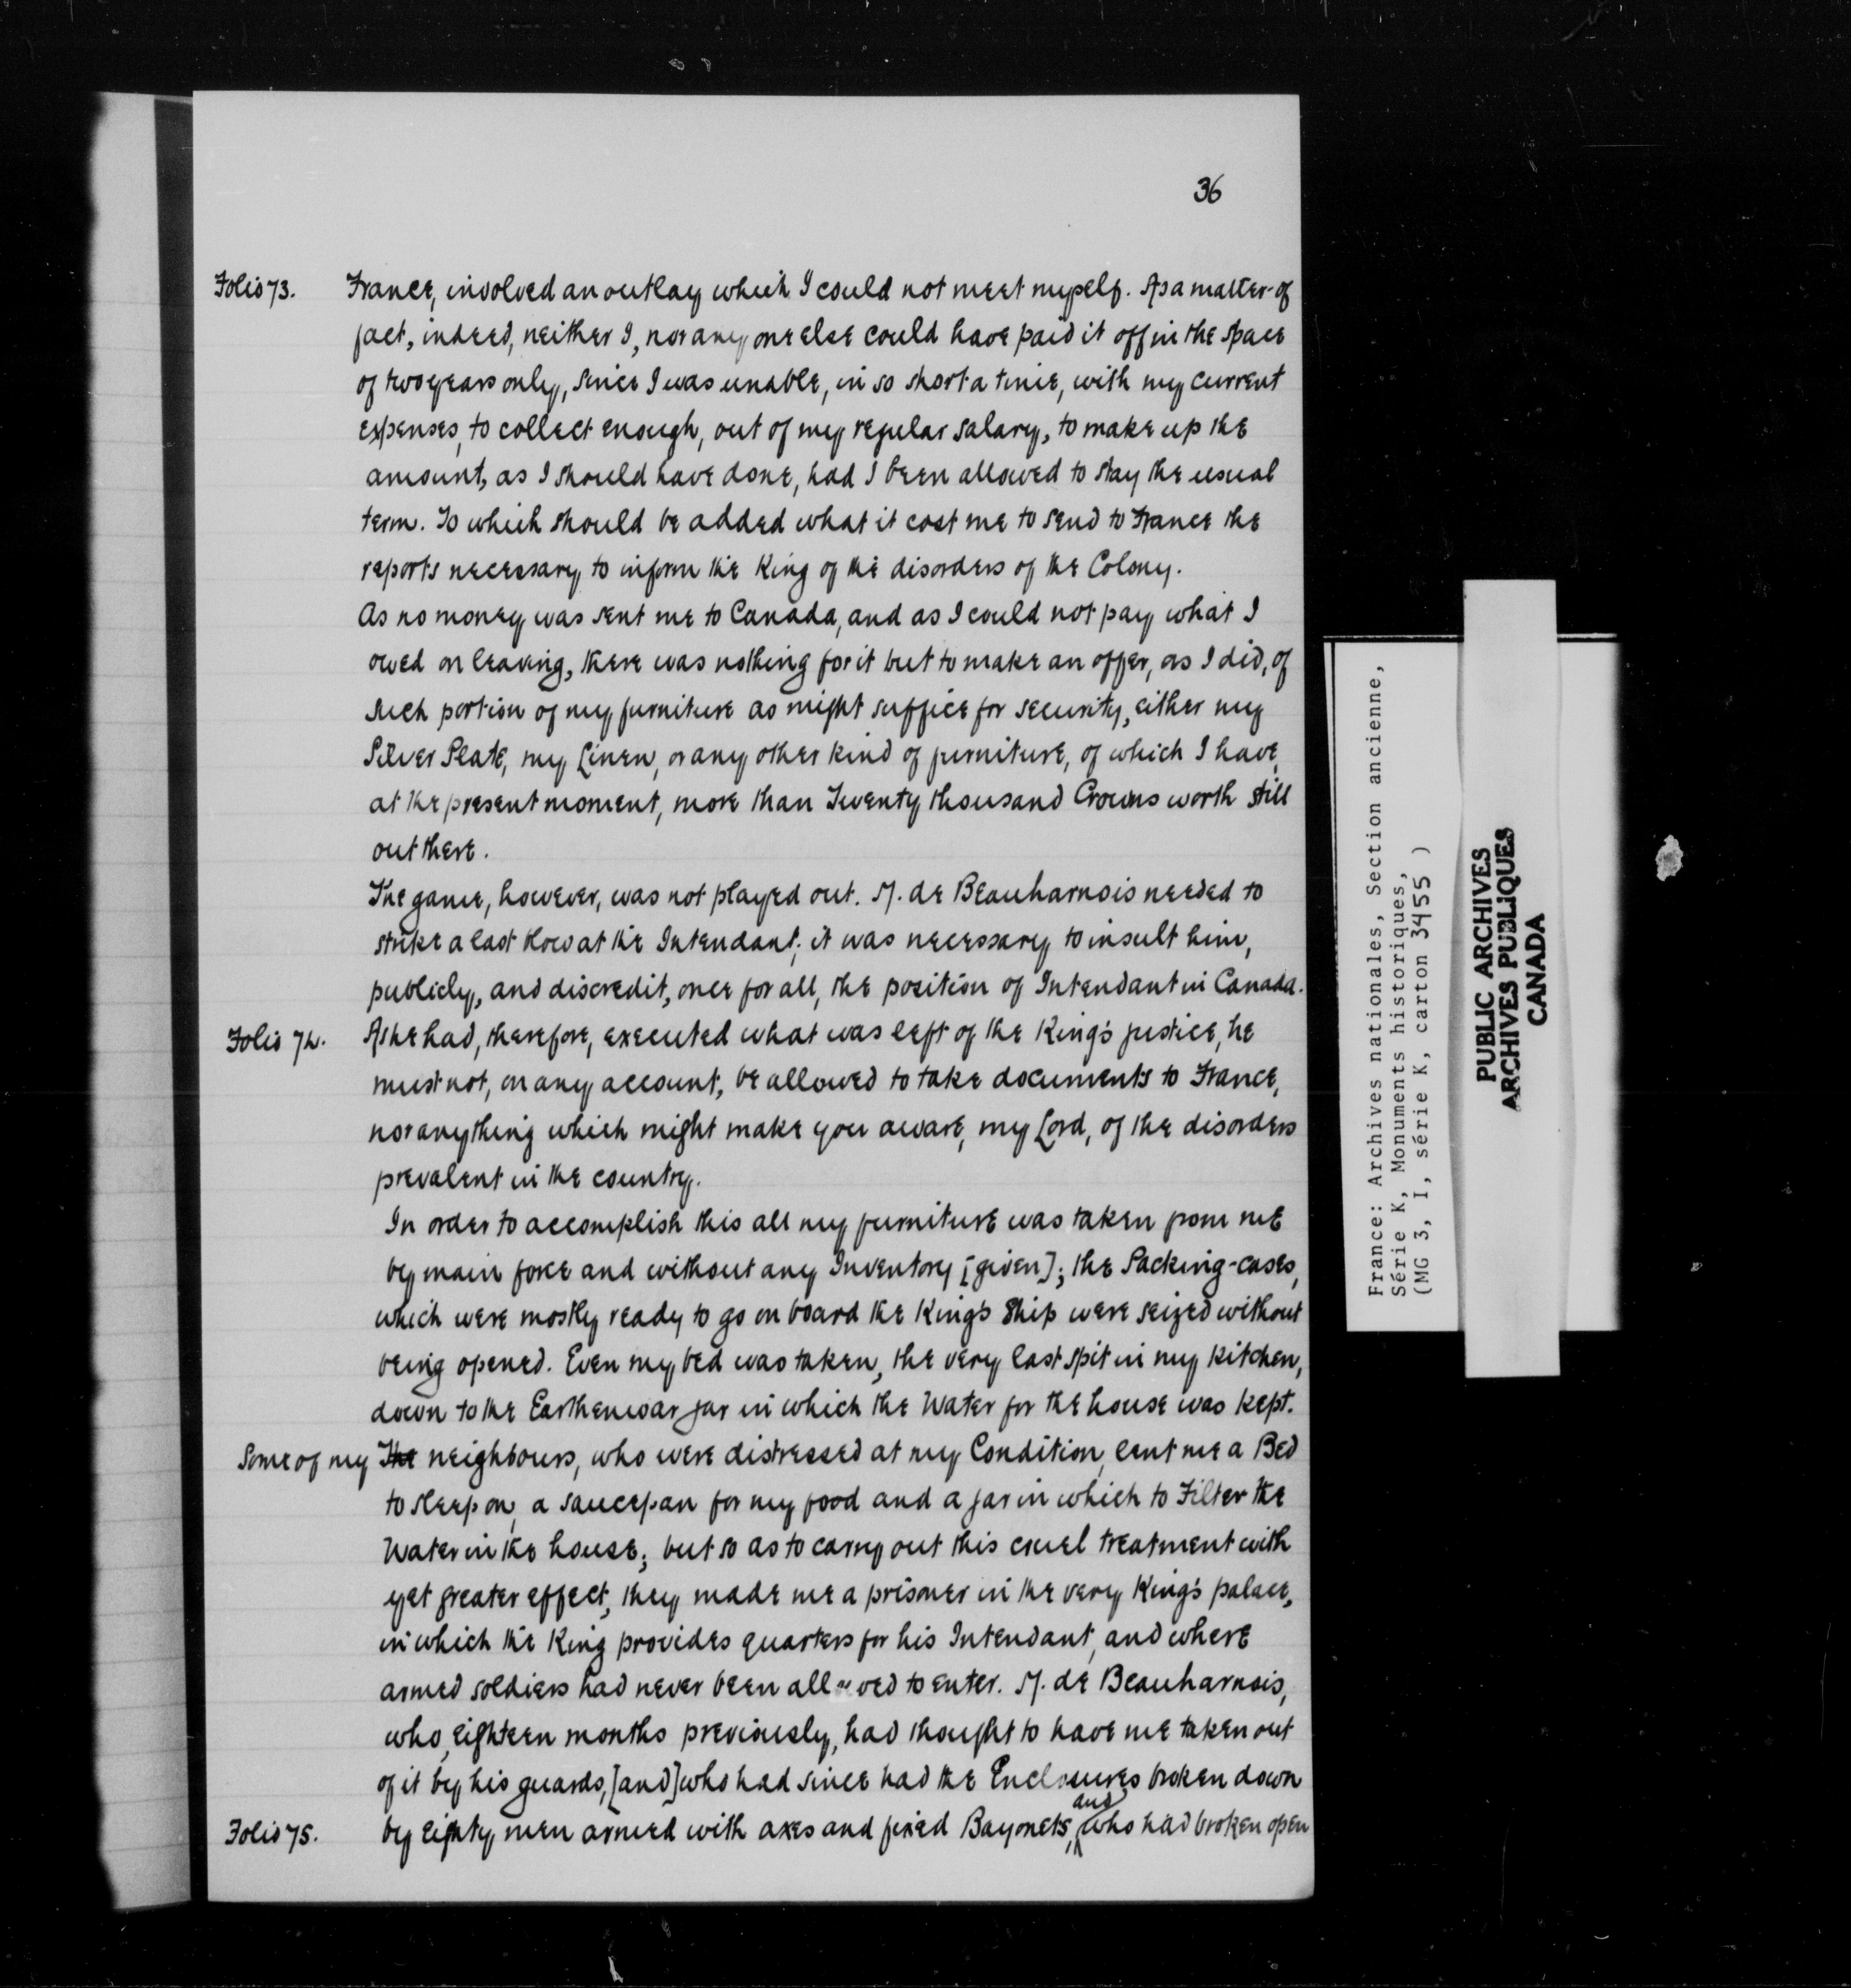 36
Folio 73. France, involved an outlay which I could not meet myself. As a matter of
fact, indeed, neither I, nor any one else could have paid it off in the space
of two years only, since I was unable, in so short a time, with my current
expenses, to collect enough, out of my regular salary, to make up the
amount, as I should have done, had I been allowed to stay the usual
term. To which should be added what it cost me to send to France the
reports necessary to inform the King of the disorders of the Colony.
As no money was sent me to Canada, and as I could not pay what I
owed on leaving, there was nothing for it but to make an offer, as I did, of
such portion of my furniture as might suffice for security, either my
Silver Plate, my Linen, or any other kind of furniture, of which I have,
at the present moment, more than Twenty thousand Crowns worth still
out there.
The game, however, was not played out. M. de Beauharnois needed to
strike a last blow at the Intendant; it was necessary to insult him,
publicly, and discredit, once for all, the position of Intendant in Canada.
Folio 74. As he had, therefore, executed what was left of the King's justice, he
must not, on any account, be allowed to take documents to France,
nor anything which might make you aware, my Lord, of the disorders
prevalent in the country.
In order to accomplish this all my furniture was taken from me
by main force and without any Inventory [given]; the Packing-cases,
which were mostly ready to go on board the King's Ship were seized without
being opened. Even my bed was taken, the very last spit in my kitchen,
down to the Earthenwar jar in which the Water for the house was kept.
Some of my The neighbours, who were distressed at my Condition, lent me a Bed
to sleep on, a saucepan for my food and a jar in which to Filter the
Water in the house; but so as to carry out this cruel treatment with
yet greater effect, they made me a prisoner in the very King's palace,
in which the King provides quarters for his Intendant, and where
armed soldiers had never been allowed to enter. M. de Beauharnois,
who, eighteen months previously, had thought to have me taken out
of it by his guards, [and] who had since had the Enclosures broken down
Folio 75. by eighty men armed with axes and fixed Bayonets, and who had broken open
France: Archives nationales, Section ancienne,
Série K, Monuments historiques,
(MG 3, I, série K, carton 3455 )
PUBLIC ARCHIVES
ARCHIVES PUBLIQUES
CANADA